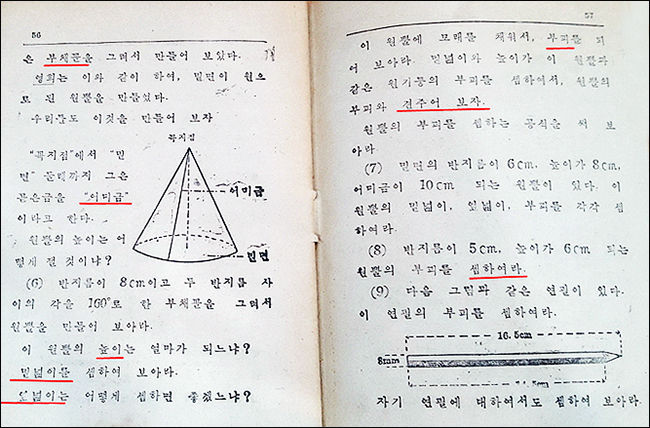 56
은 부채꼴을 그려서 만들어 보았다.
영희는 이와 같이 하여, 밑면이 원으
로 된 원뿔을 만들었다.
우리들도 이것을 만들어 보자
"꼭지점"에서 "밑
면" 둘레까지 그은
곧은금을 "어미금"
이라고 한다.
원뿔의 높이는 어
떻게 잴 것이냐?
꼭지점
어미금
밑면
(6) 반지름이 8cm이고 두 반지름 사
이의 각을 160°로 한 부채꼴을 그려서
원뿔을 만들어 보아라.
이 원뿔의 높이는 얼마가 되느냐?
밑넓이를 셈하여 보아라.
옆넓이는 어떻게 셈하면 좋겠느냐?
57
이 원뿔에 모래를 채워서, 부피를 되
어 보아라. 밑넓이와 높이가 이 원뿔과
같은 원기둥의 부피를 셈하여서, 원뿔의
부피와 견주어 보자.
원뿔의 부피를 셈하는 공식을 써 보
아라
(7) 밑면의 반지름이 6cm, 높이가 8cm,
어미금이 10cm 되는 원뿔이 있다. 이
원뿔의 밑넓이, 옆넓이, 부피를 각각 셈
하여라.
(8) 반지름이 5cm, 높이가 6cm 되는
원뿔의 부피를 셈하여라.
(9) 다음 그림과 같은 연필이 있다.
이 연필의 부피를 셈하여라.
16.5cm
8mm
자기 연필에 대하여서도 셈하여 보아라.